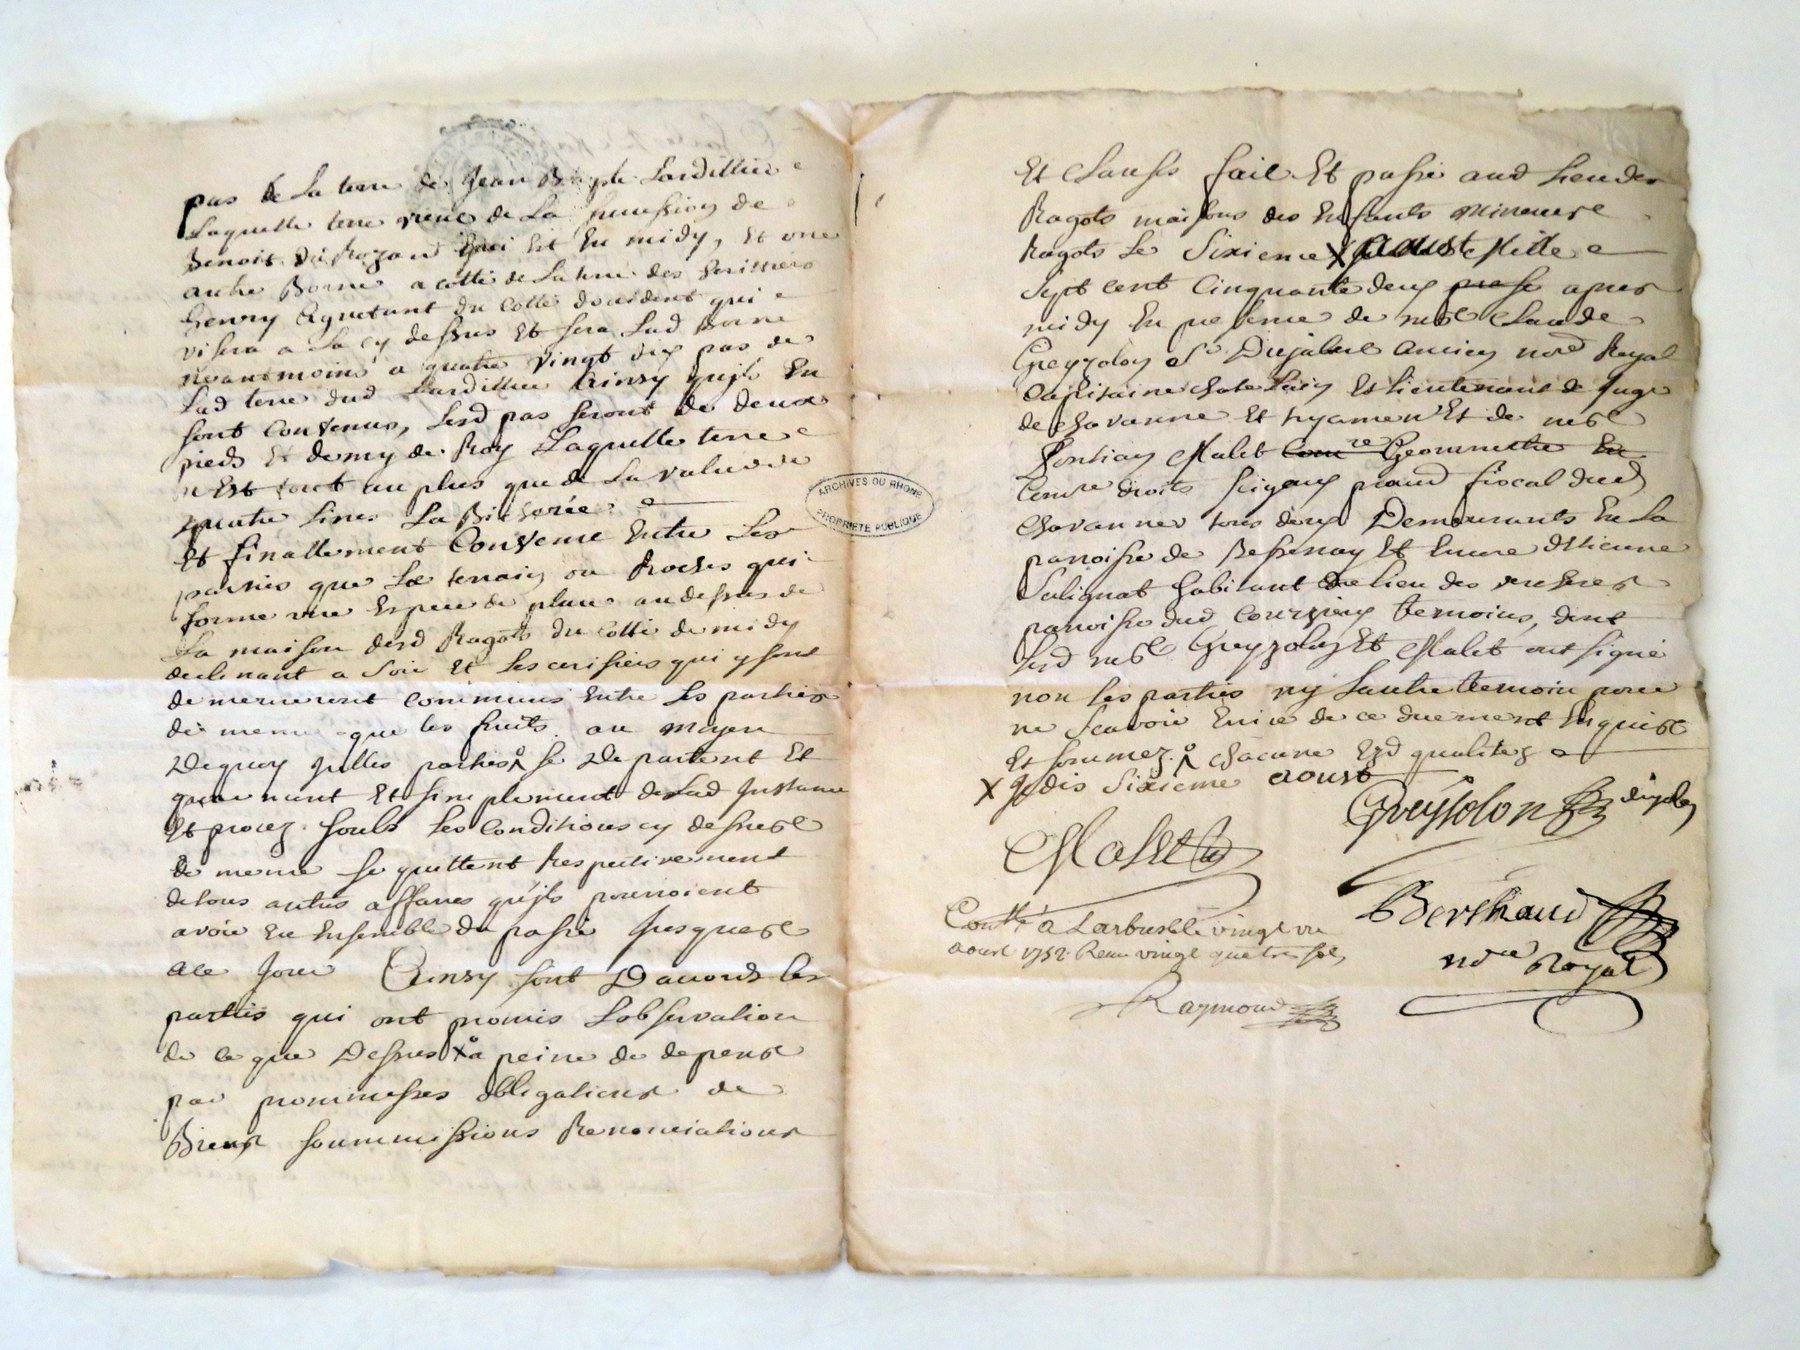 pas de La terre de Jean Baptte Lardillier
Laquelle terre vient de La succession de
Benoit Du Rozan qui Est En midy, Et une
autre Borne a cotté de La terre des heritiers
henry Agnetant du Cotté doccident qui
visera a La cy dessus Et sera Lad Borne
neantmoins a quatre vingt dix pas de
Lad terre dud Lardillier Ainsy quils En
sont Convenus, Lesd pas seront de deux
pieds Et demy de Roy Laquelle terre
n'Est tout au plus que de La valeur de
quatre Livres La Bicherée
Et finallement Convenu Entre Les
parties que Le terrain ou Rochers qui
forme une Espece de place au dessus de
La maison desd Ragots du Cotté de midy
declinant a soir Et Les cerisiers qui y sont
demeureront communs Entre Les parties
de meme que les fruits. au moyen
Dequoy Icelles parties se Departent Et
purement Et simplement de Lad Instance
Et procez soubs Les Conditions cy dessus
de meme se quittent Respectivement
de tous autres affaires qu'ils pourroient
avoir Eu Ensemble du passé Jusques
a Ce Jour Ainsy sont D'accord Les
parties qui ont promis L'observation
de ce que Dessus X a peine de depens
par promesses obligations de
Biens soummissions Renonciations
ARCHIVES DU RHONE
PROPRIETE PUBLIQUE
Et Clauses fait Et passé aud Lieu des
Ragots maisons des Enfants Mineurs
Ragots Le Sixieme X aoust Mille
Sept cent Cinquante deux apres
midy En presence de me Claude
Greyzolon Sr Dujalné Ancien nore Royal
Capitaine chatelain Et Lieutenant de Juge
de Chavanne Et hyamen Et de me
Pontian Malet Comre Geommetre En
Comre droits seigrx procur fiscal dud
Chavannes tous deux Demeurants En La
paroisse de Bessenay Et Encore Etienne
Salignat habitant du Lieu des
paroisse dud Courzieux temoins, dont
Lesd me Greyzolon Et Malet ont signé
non les parties ny Lautre temoin pour
ne scavoir Ecrire de ce duement Enquis
Et sommez. chacune Ezd qualitez
X Je dis Sixieme aoust
Greysolon dujalne
Malet
Berthaud
nore Royal
Conttlé a Larbresle vingt un
aout 1752 Recu vingt quatre sols
Raymond